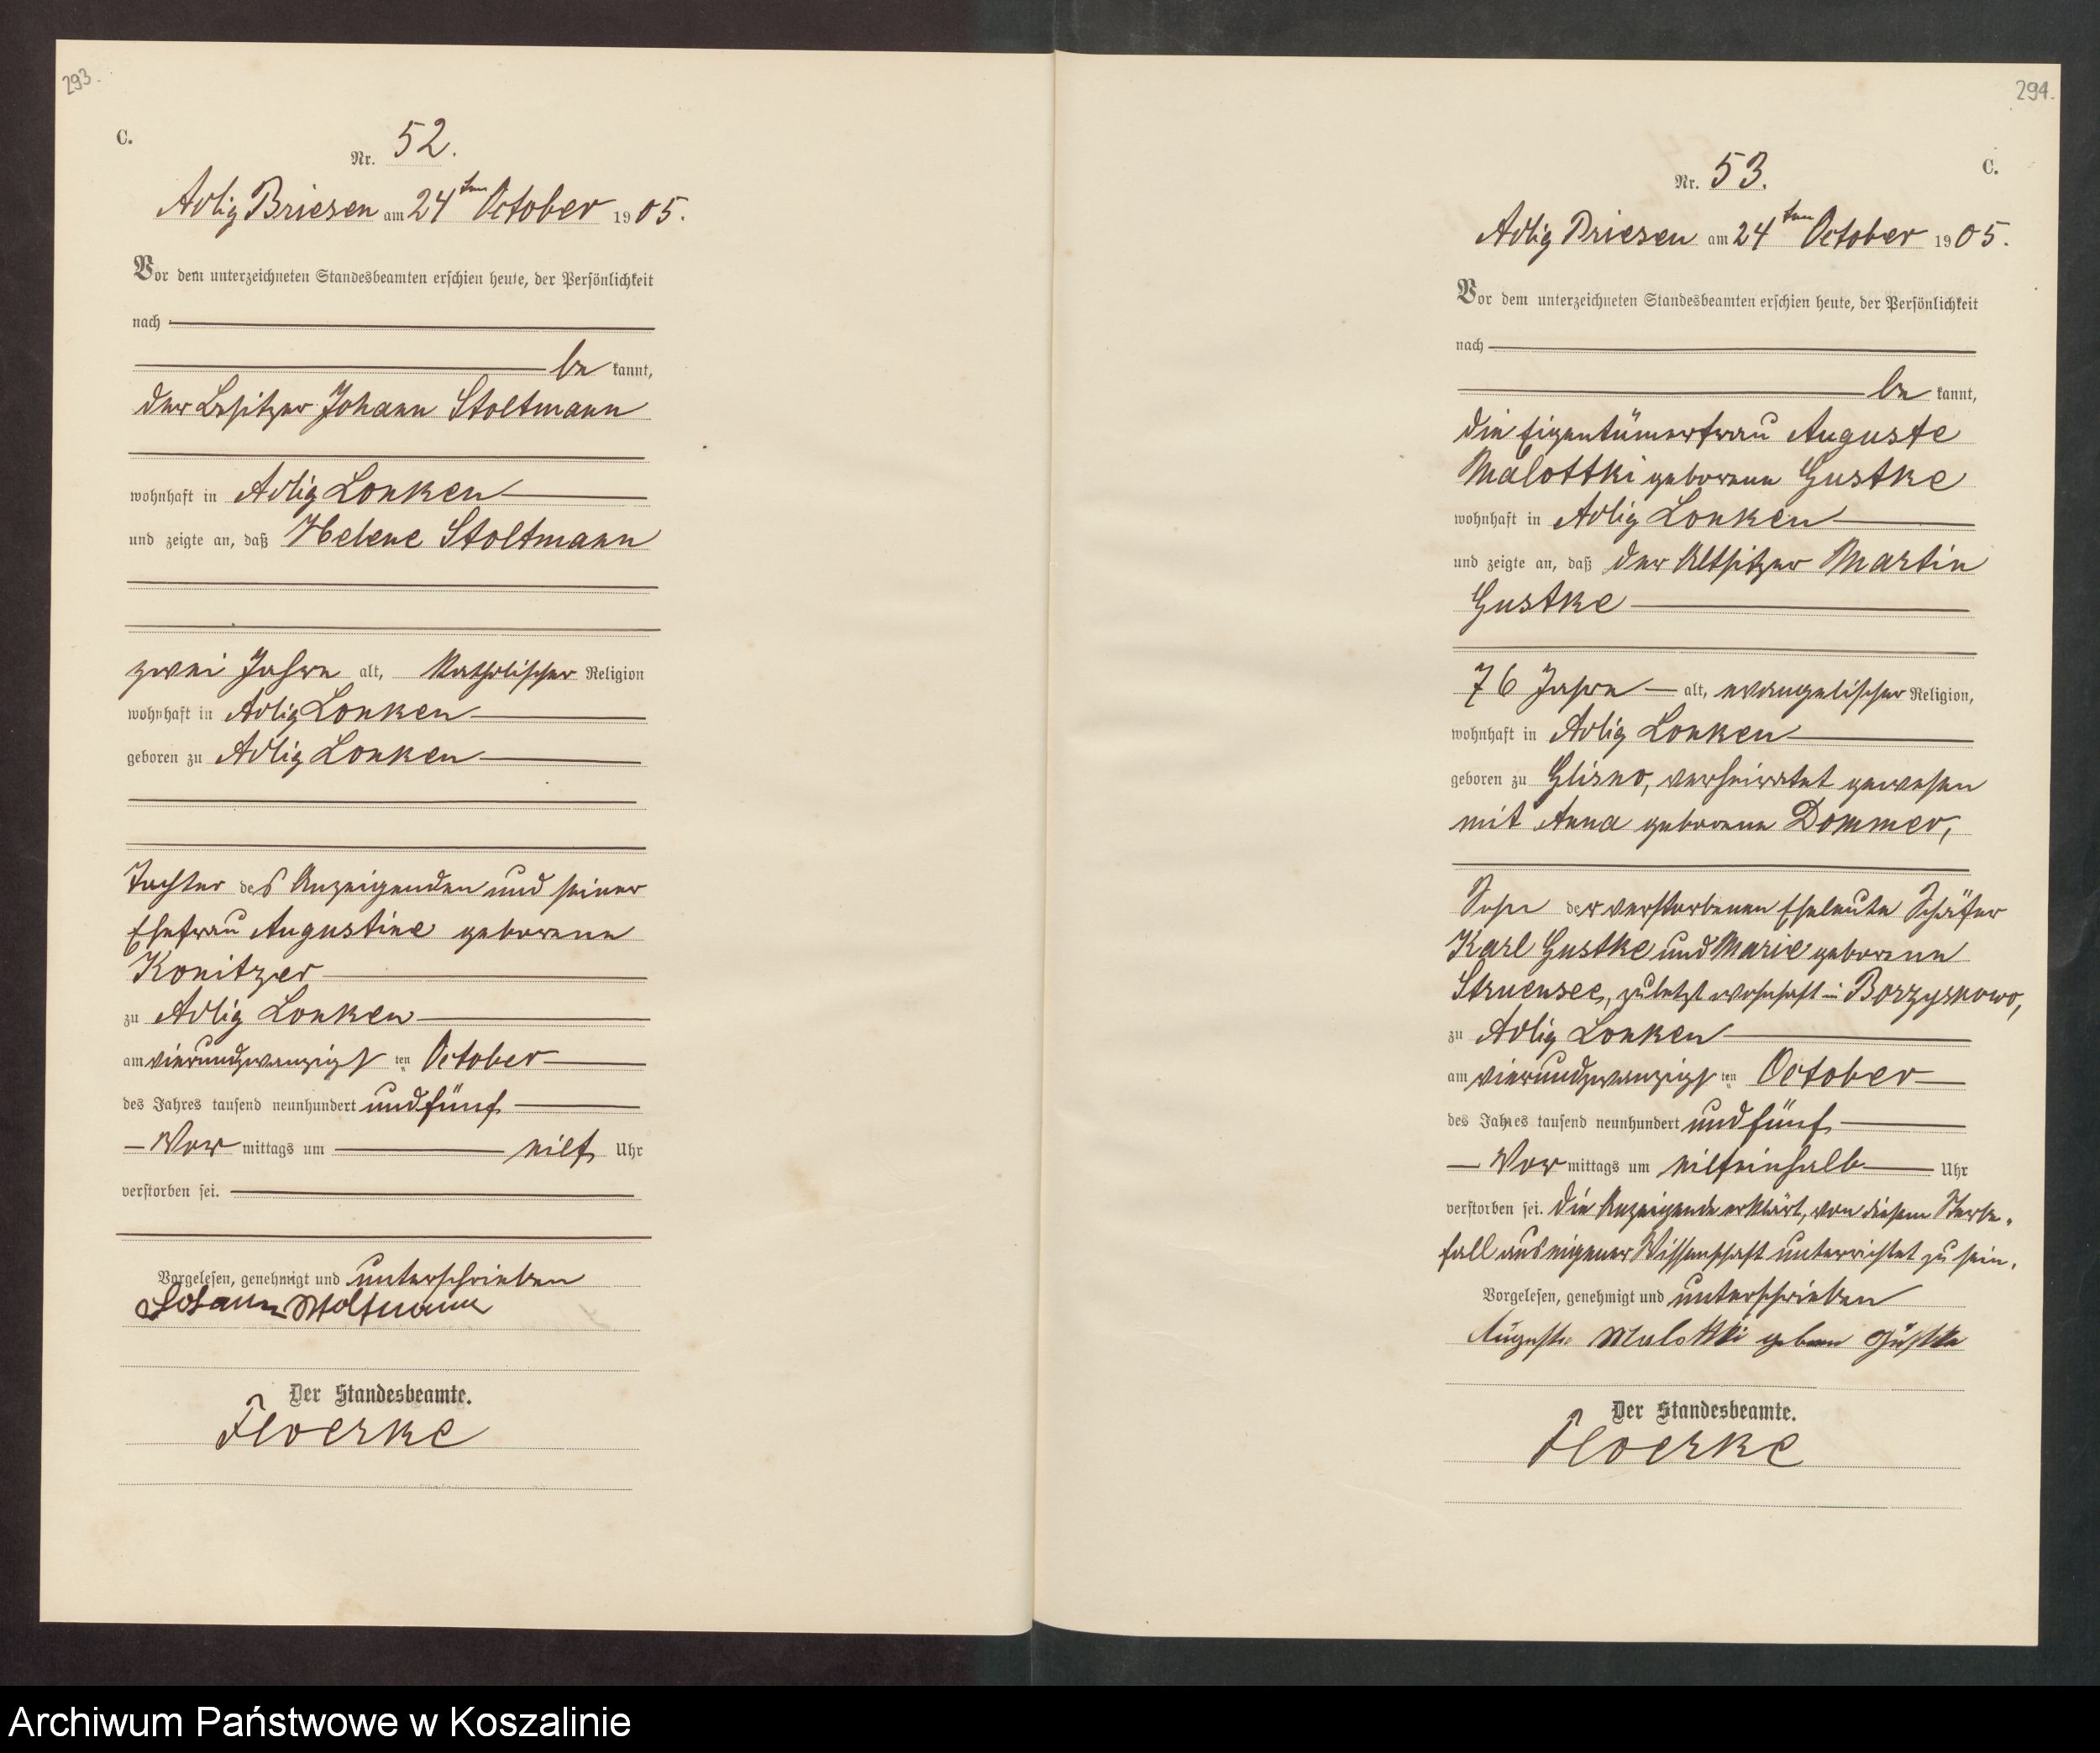 293.
C.
Nr. 52.
Adlig Briesen am 24ten October 1905.
Vor dem unterzeichneten Standesbeamten erschien heute, der Persönlichkeit
nach
be kannt,
der Besitzer Johann Stoltmann
wohnhaft in Adlig Lonken
und zeigte an, daß Helene Stoltmann
zwei Jahre alt, katholischer Religion
wohnhaft in Adlig Lonken
geboren zu Adlig Lonken
Tochter des Anzeigenden und seiner
Ehefrau Augustine geborene
Konitzer
zu Adlig Lonken
am vierundzwanzigsten October
des Jahres tausend neunhundert und fünf
Vor mittags um elf Uhr
verstorben sei.
Vorgelesen, genehmigt und unterschrieben
Johann Stoltmann
Der Standesbeamte.
Floerke
294.
C.
Nr. 53.
Adlig Briesen am 24ten October 1905.
Vor dem unterzeichneten Standesbeamten erschien heute, der Persönlichkeit
nach
be kannt,
die Eigentümerfrau Auguste
Malottki geborene Gustke
wohnhaft in Adlig Lonken
und zeigte an, daß der Altsitzer Martin
Gustke
76 Jahre alt, evangelischer Religion,
wohnhaft in Adlig Lonken
geboren zu Glisno, verheiratet gewesen
mit Anna geborene Dommer,
Sohn der verstorbenen Eheleute Schäfer
Karl Gustke und Marie geborene
Struensee, zuletzt wohnhaft in Borzyskowo,
zu Adlig Lonken
am vierundzwanzigsten October
des Jahres tausend neunhundert und fünf
Vor mittags um elfeinhalb Uhr
verstorben sei. Die Anzeigende erklärt, von diesem Sterbe-
fall aus eigener Wissenschaft unterrichtet zu sein.
Vorgelesen, genehmigt und unterschrieben
Auguste Malottki geboren Gustke
Der Standesbeamte.
Floerke
Archiwum Państwowe w Koszalinie